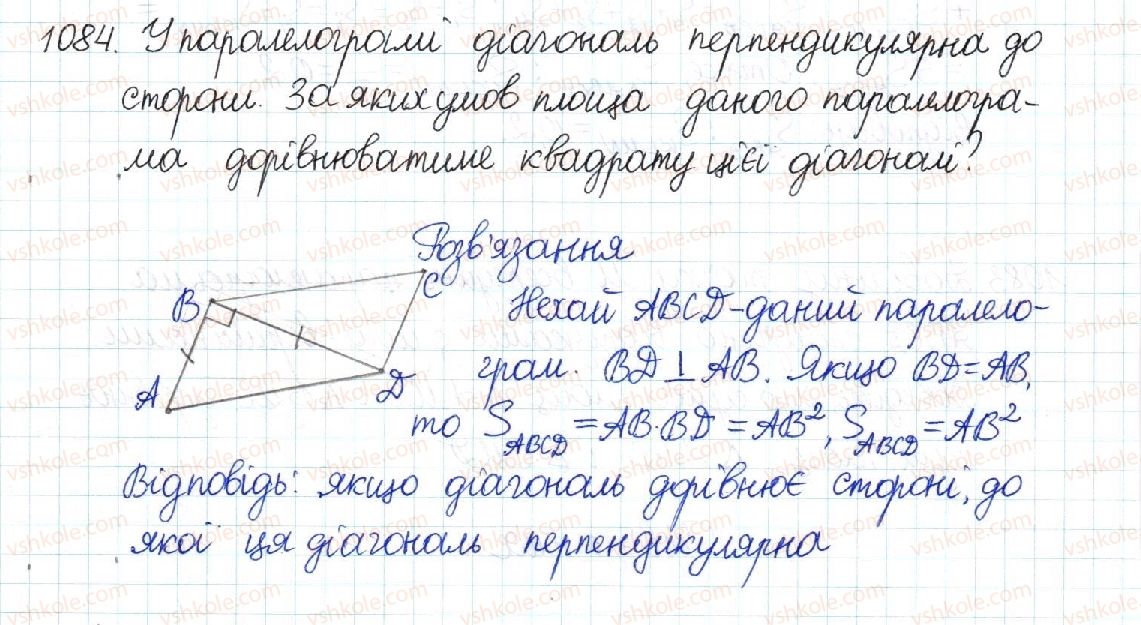 1084. У паралелограмі діагональ перпендикулярна до
сторони. За яких умов площа даного паралелогра-
ма дорівнюватиме квадрату цієї діагоналі?
Розв'язання
B
C
A
D
Нехай ABCD-даний паралело-
грам. BD⊥AB. Якщо BD=AB,
то S_ABCD=AB·BD=AB², S_ABCD=AB²
Відповідь: якщо діагональ дорівнює стороні, до
якої ця діагональ перпендикулярна
vshkole.com